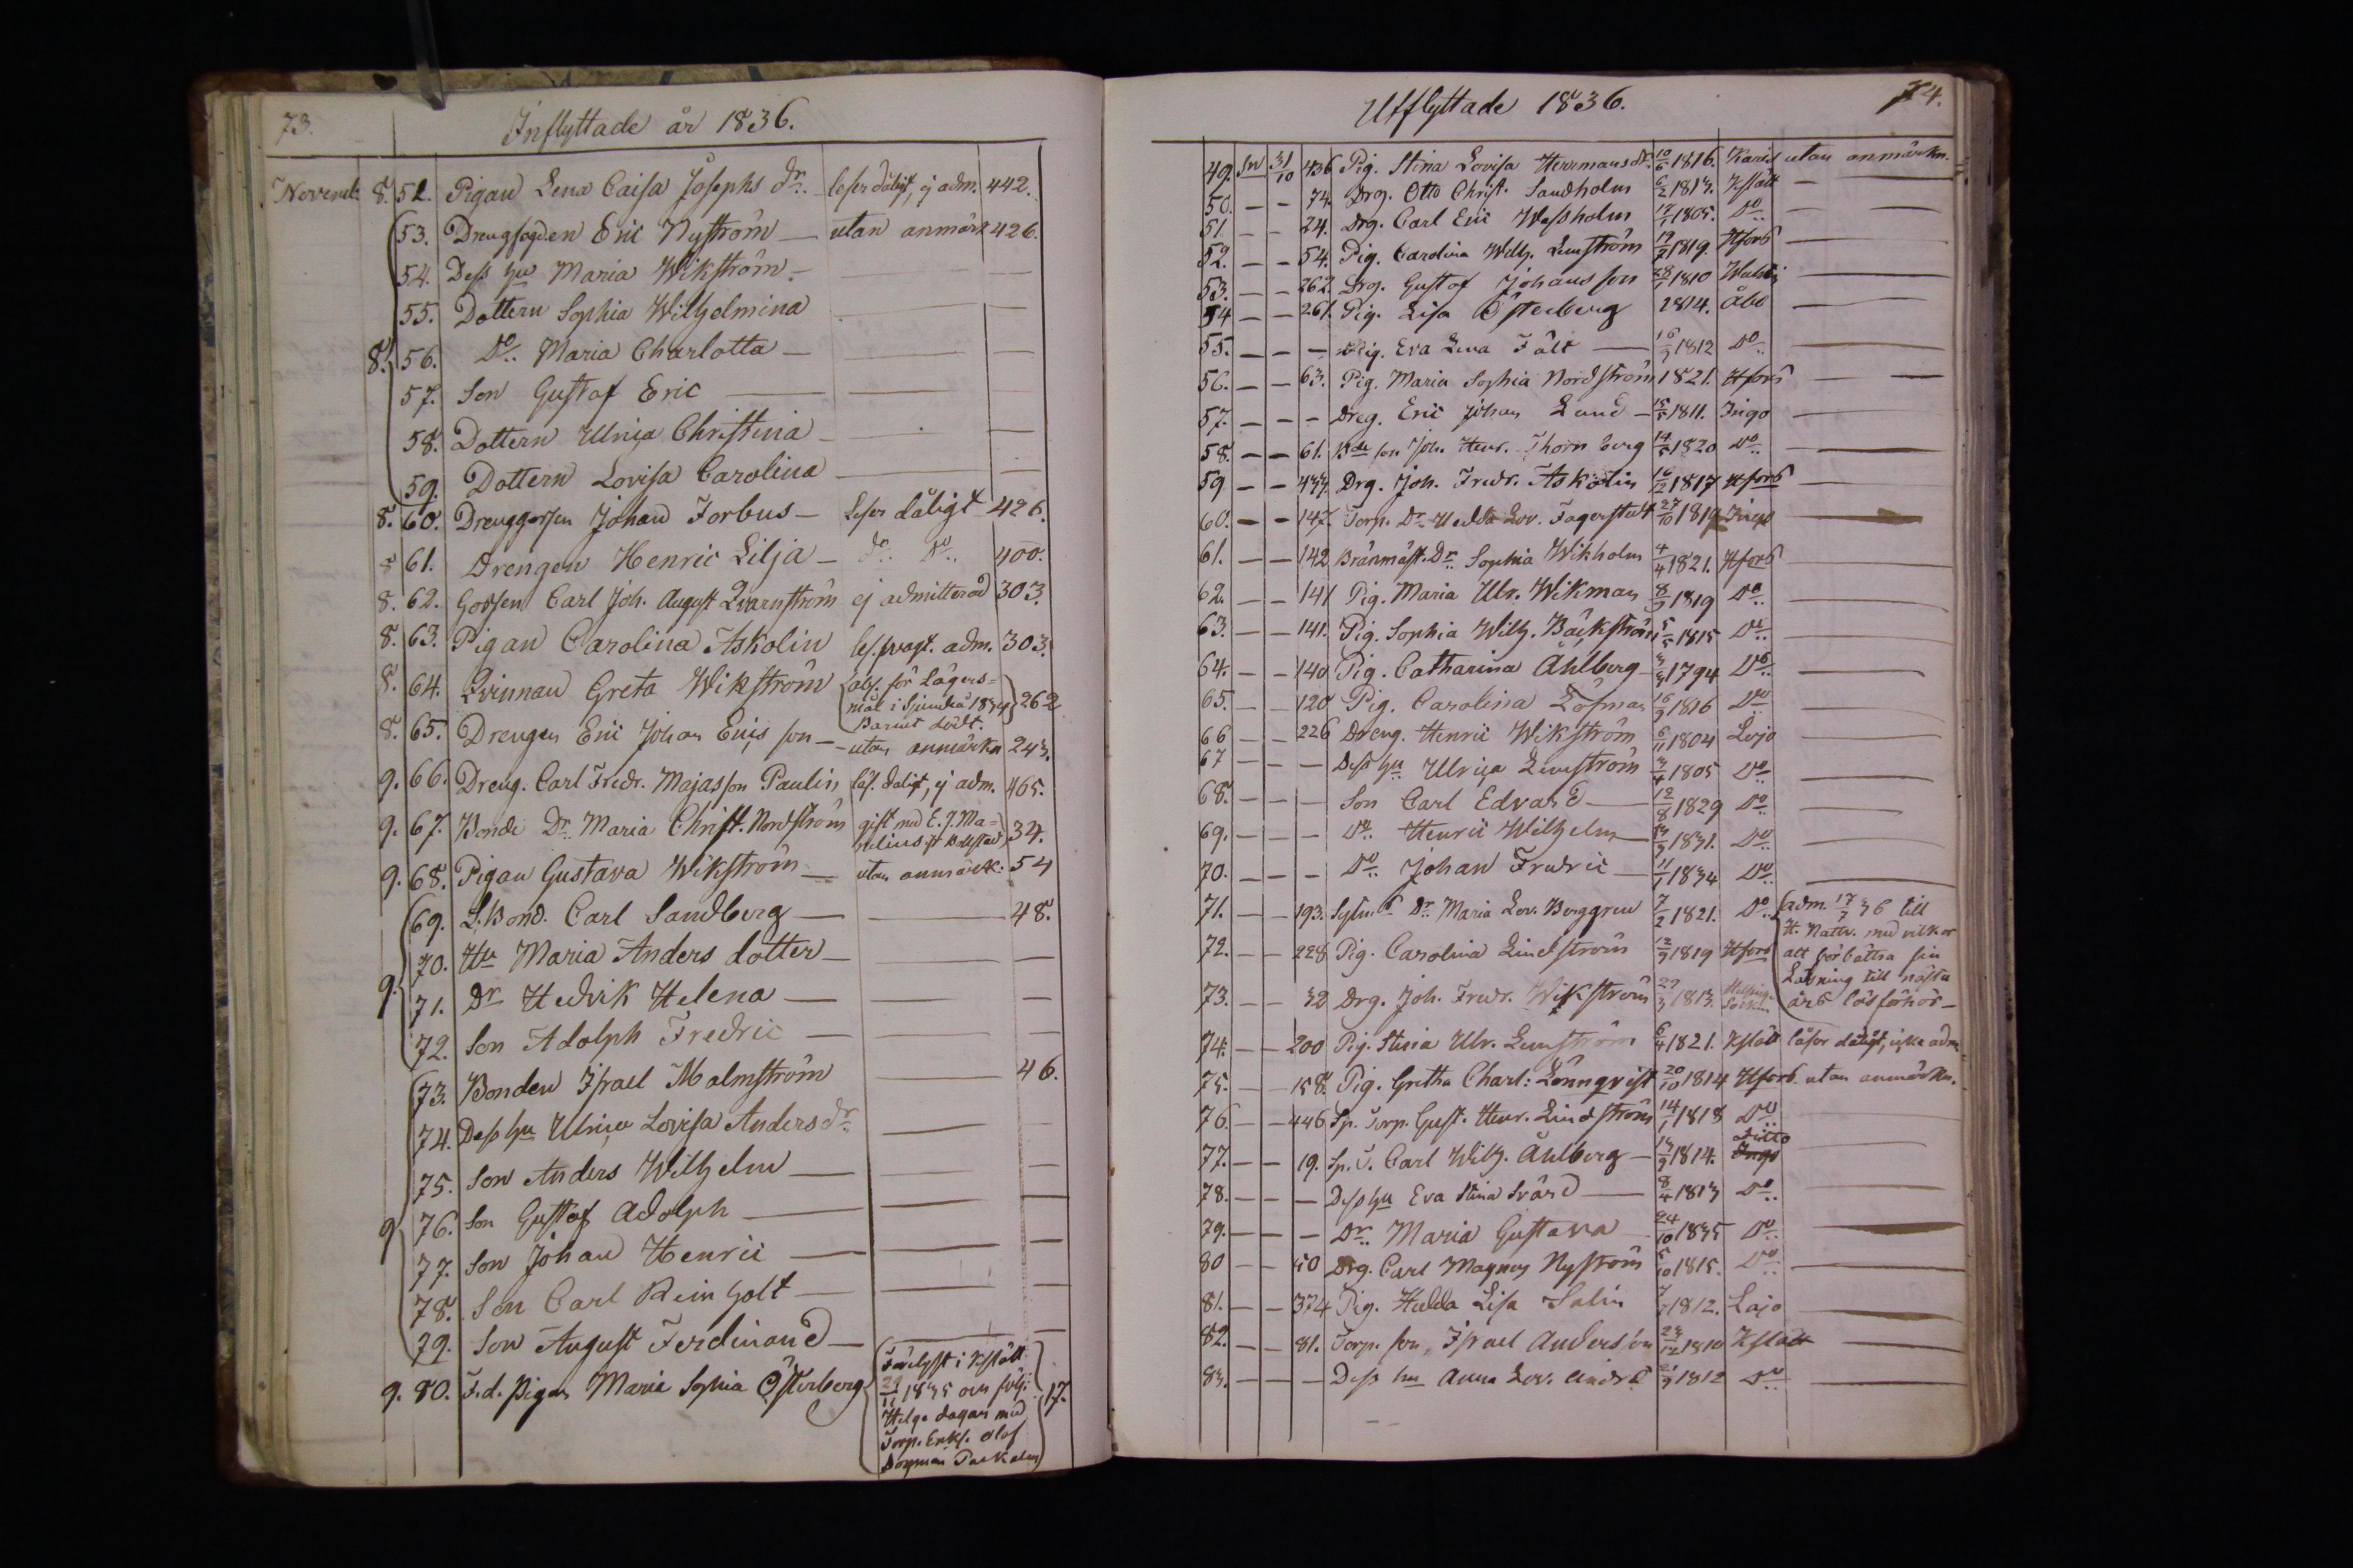 73.
Inflyttade år 1836.
Novemb. 8. 52. Pigan Lena Caisa Josephs dr. läser dåligt, ej adm. 442.
53. Drengfogden Eric Nyström — utan anmärk 426.
54. Dess hu Maria Wikström — — —
55. Dottern Sophia Wilhelmina — —
8. 56. Do. Maria Charlotta — — —
57. Son Gustaf Eric — — —
58. Dottern Ulrica Christina — — —
59. Dottern Lovisa Carolina — —
8. 60. Drenggossen Johan Forbus — Läser dåligt 426.
8 61. Drengen Henric Lilja — do. do. 400.
8. 62. Gossen Carl Joh. August Qvarnström ej admitterad 303.
8. 63. Pigan Carolina Askolin läs. svagt. adm. 303.
8. 64. Qvinnan Greta Wikström abs. för Lägers=
mål i Sjundeå 1834 262
Barnet dödt.
8. 65. Drengen Eric Johan Erics son — utan anmärkn 243.
9. 66. Dreng. Carl Fredr. Majasson Paulin läs. dåligt, ej adm. 465.
9. 67. Bonde Dr. Maria Christ. Nordström gift med E. J. Ma=
34.
9. 68. Pigan Gustava Wikström — utan anmärk: 54
69. L. Bond. Carl Sandberg — — 48.
70. Hu Maria Anders dotter — — —
9. 71. Dr Hedvik Helena — — —
72. Son Adolph Fredric — — —
73. Bonden Israel Malmström — 46.
74. Dess hu Ulrica Lovisa Anders dr. — —
75. Son Anders Wilhelm — — —
9 76. Son Gustaf Adolph — — —
77. Son Johan Henric — — —
78. Son Carl Reinholt — — —
79. Son August Ferdinand — — —
9. 80. F.d. Pigan Maria Sophia Österberg Förelyst i Kslätt
1835 och följ: 17.
Helge dagar med
Torp. Enkl. Olof
74.
Utflyttade 1836.
49. Sn 31/10 436 Pig. Stina Lovisa Hermansdr. 10/6 1816. Karis utan anmärkn.
50. — — 74. Drg. Otto Christ. Sandholm 6/2 1813. Kslätt —
51. — — 24. Drg. Carl Eric Wassholm 1805. Do. —
52. — — 54. Pig. Carolina Wilh. Lemström 1819. Hfors —
53. — — 262. Drg. Gustaf Johans son 1810 —
54 — — 261. Pig. Lisa Österberg 1814. Åbo —
55. — — — Pig. Eva Lena Fält — 16/9 1812 Do. —
56. — — 63. Pig. Maria Sophia Nordström 1821. Hfors —
57. — — — Dreg. Eric Johan Lund — 15/5 1811. Ingo —
58. — — 61. Bde son Joh. Henr. Thornberg 14/5 1820 Do. —
59 — — 433. Drg. Joh. Fredr. Askolin 16/12 1817 Hfors —
60. — — 147. Torp. Dr. Hedda Lov. Fagerstedt 27/10 1819 Ingo —
61. — — 142 Bränmäst. Dr. Sophia Wikholm 4/4 1821. Hfors —
62. — — 141 Pig. Maria Ulr. Wikman 8/9 1819 Do. —
63. — — 141. Pig. Sophia Wilh. Bäckström 5/5 1815 Do. —
64. — — 140 Pig. Catharina Åhlberg 3/3 1794 Do. —
65. — — 120 Pig. Carolina Löfman 16/9 1816 Do —
66 — — 226 Dreng. Henric Wikström 6/11 1804 Lojo —
67 — — — Dess hu Ulrica Lemström 3/4 1805 Do. —
68. — — — Son Carl Edvard — 12/8 1829 Do. —
69. — — — Do. Henric Wilhelm — 1831. Do. —
70. — — — Do. Johan Fredric — 11/1 1834 Do. —
71. — — 193. Dr. Maria Lov. Berggren 7/2 1821. Do. adm. 17/7 36 till
H. Nattv. med vilkor
72. — — 228 Pig. Carolina Lindström 12/9 1819 Hfors att förbättra sin
Läsning till nästa
73. — — 32 Drg. Joh. Fredr. Wikström 29/3 1813. Helsinge Socken års läsförhör —
74. — — 200 Pig. Stina Ulr. Lemström 6/4 1821. Kslätt läser dåligt, icke adm
75. — — 158. Pig. Gretha Charl: Lönnqvist 20/10 1814 Hfors. utan anmärkn.
76. — — 446 Sp. Torp. Gust. Henr. Lindström 14/1 1818 Do. —
77. — — 19. Sp. T. Carl Wilh. Åhlberg — 1814. ditto Ingo —
78. — — — Dess hu Eva Stina Svärd — 8/4 1813 Do. —
79. — — — Dr. Maria Gustava — 24/10 1835 Do. —
80 — — 50 Drg. Carl Magnus Nyström 5/10 1815. Do. —
81. — — 374 Pig. Hedda Lisa Salin 1812. Lojo —
82. — — 81. Torp. son, Israel Anderson 23/12 1810 Kslätt —
83. — — — Dess hu Anna Lov. 1812 Do —